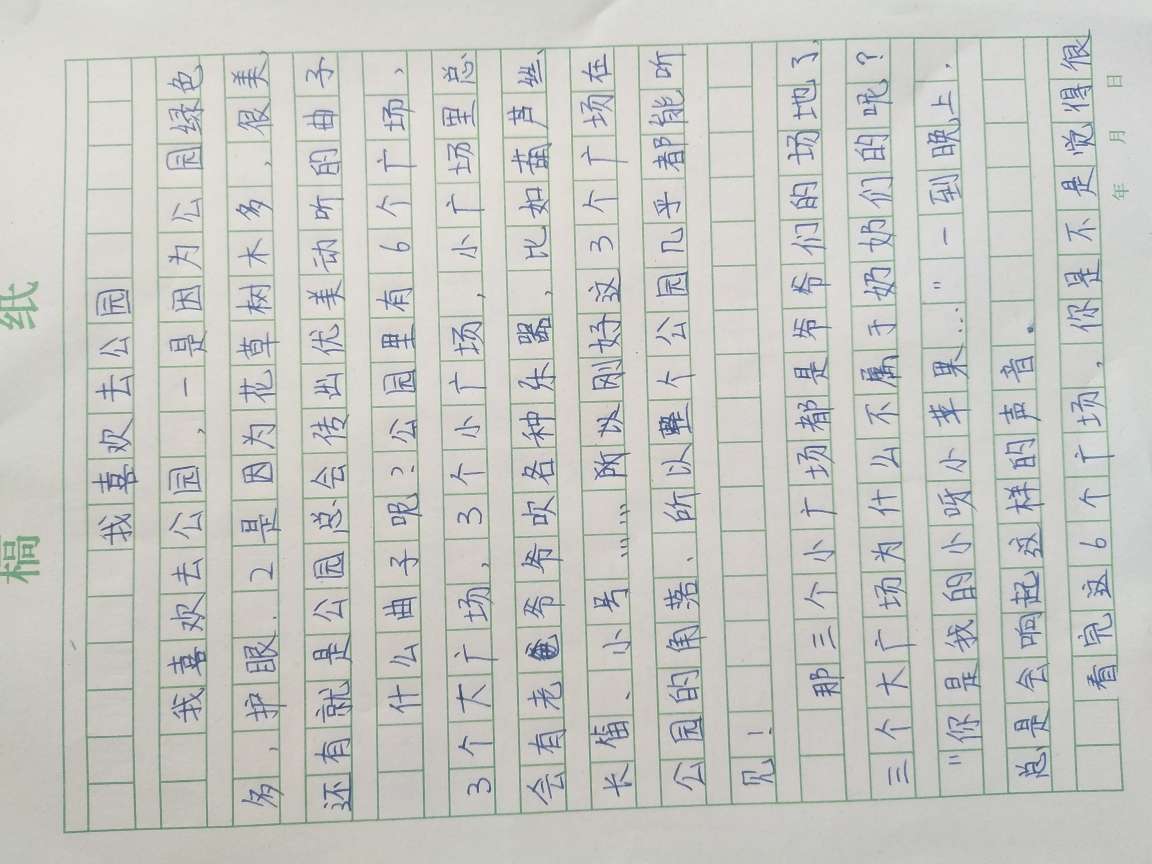 稿 纸
我喜欢去公园
我喜欢去公园，一是因为公园绿色
多，护眼.2是因为花草树木多，很美
还有就是公园总会传出优美动听的曲子
什么曲子呢？公园里有6个广场，
3个大广场，3个小广场，小广场里总
会有老爷爷吹各种乐器，比如葫芦丝、
长笛、小号……所以刚好这3个广场在
公园的角落、所以整个公园几乎都能听
见！
那三个小广场都是爷爷们的场地了，
三个大广场为什么不属于奶奶们的呢？
"你是我的小呀小苹果…"一到晚上，
总是会响起这样的声音。
看完这6个广场，你是不是觉得很
年 月 日